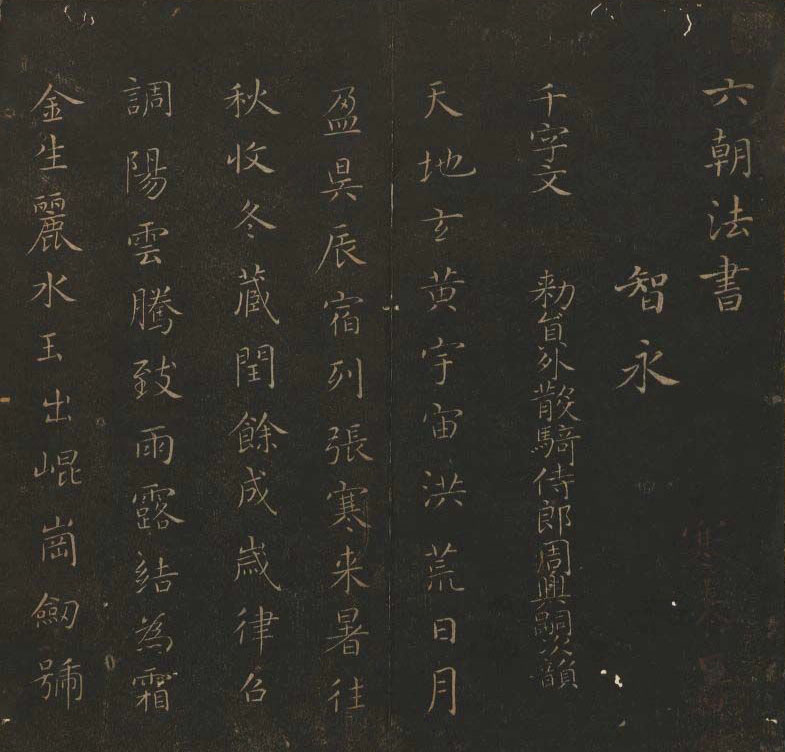 六朝法書
智永
千字文 勅員外散騎侍郎周興嗣次韻
天地玄黄宇宙洪荒日月
盈昃辰宿列張寒来暑往
秋收冬蔵閏餘成歲律召
調陽雲騰致雨露結為霜
金生麗水玉出崐崗劒號